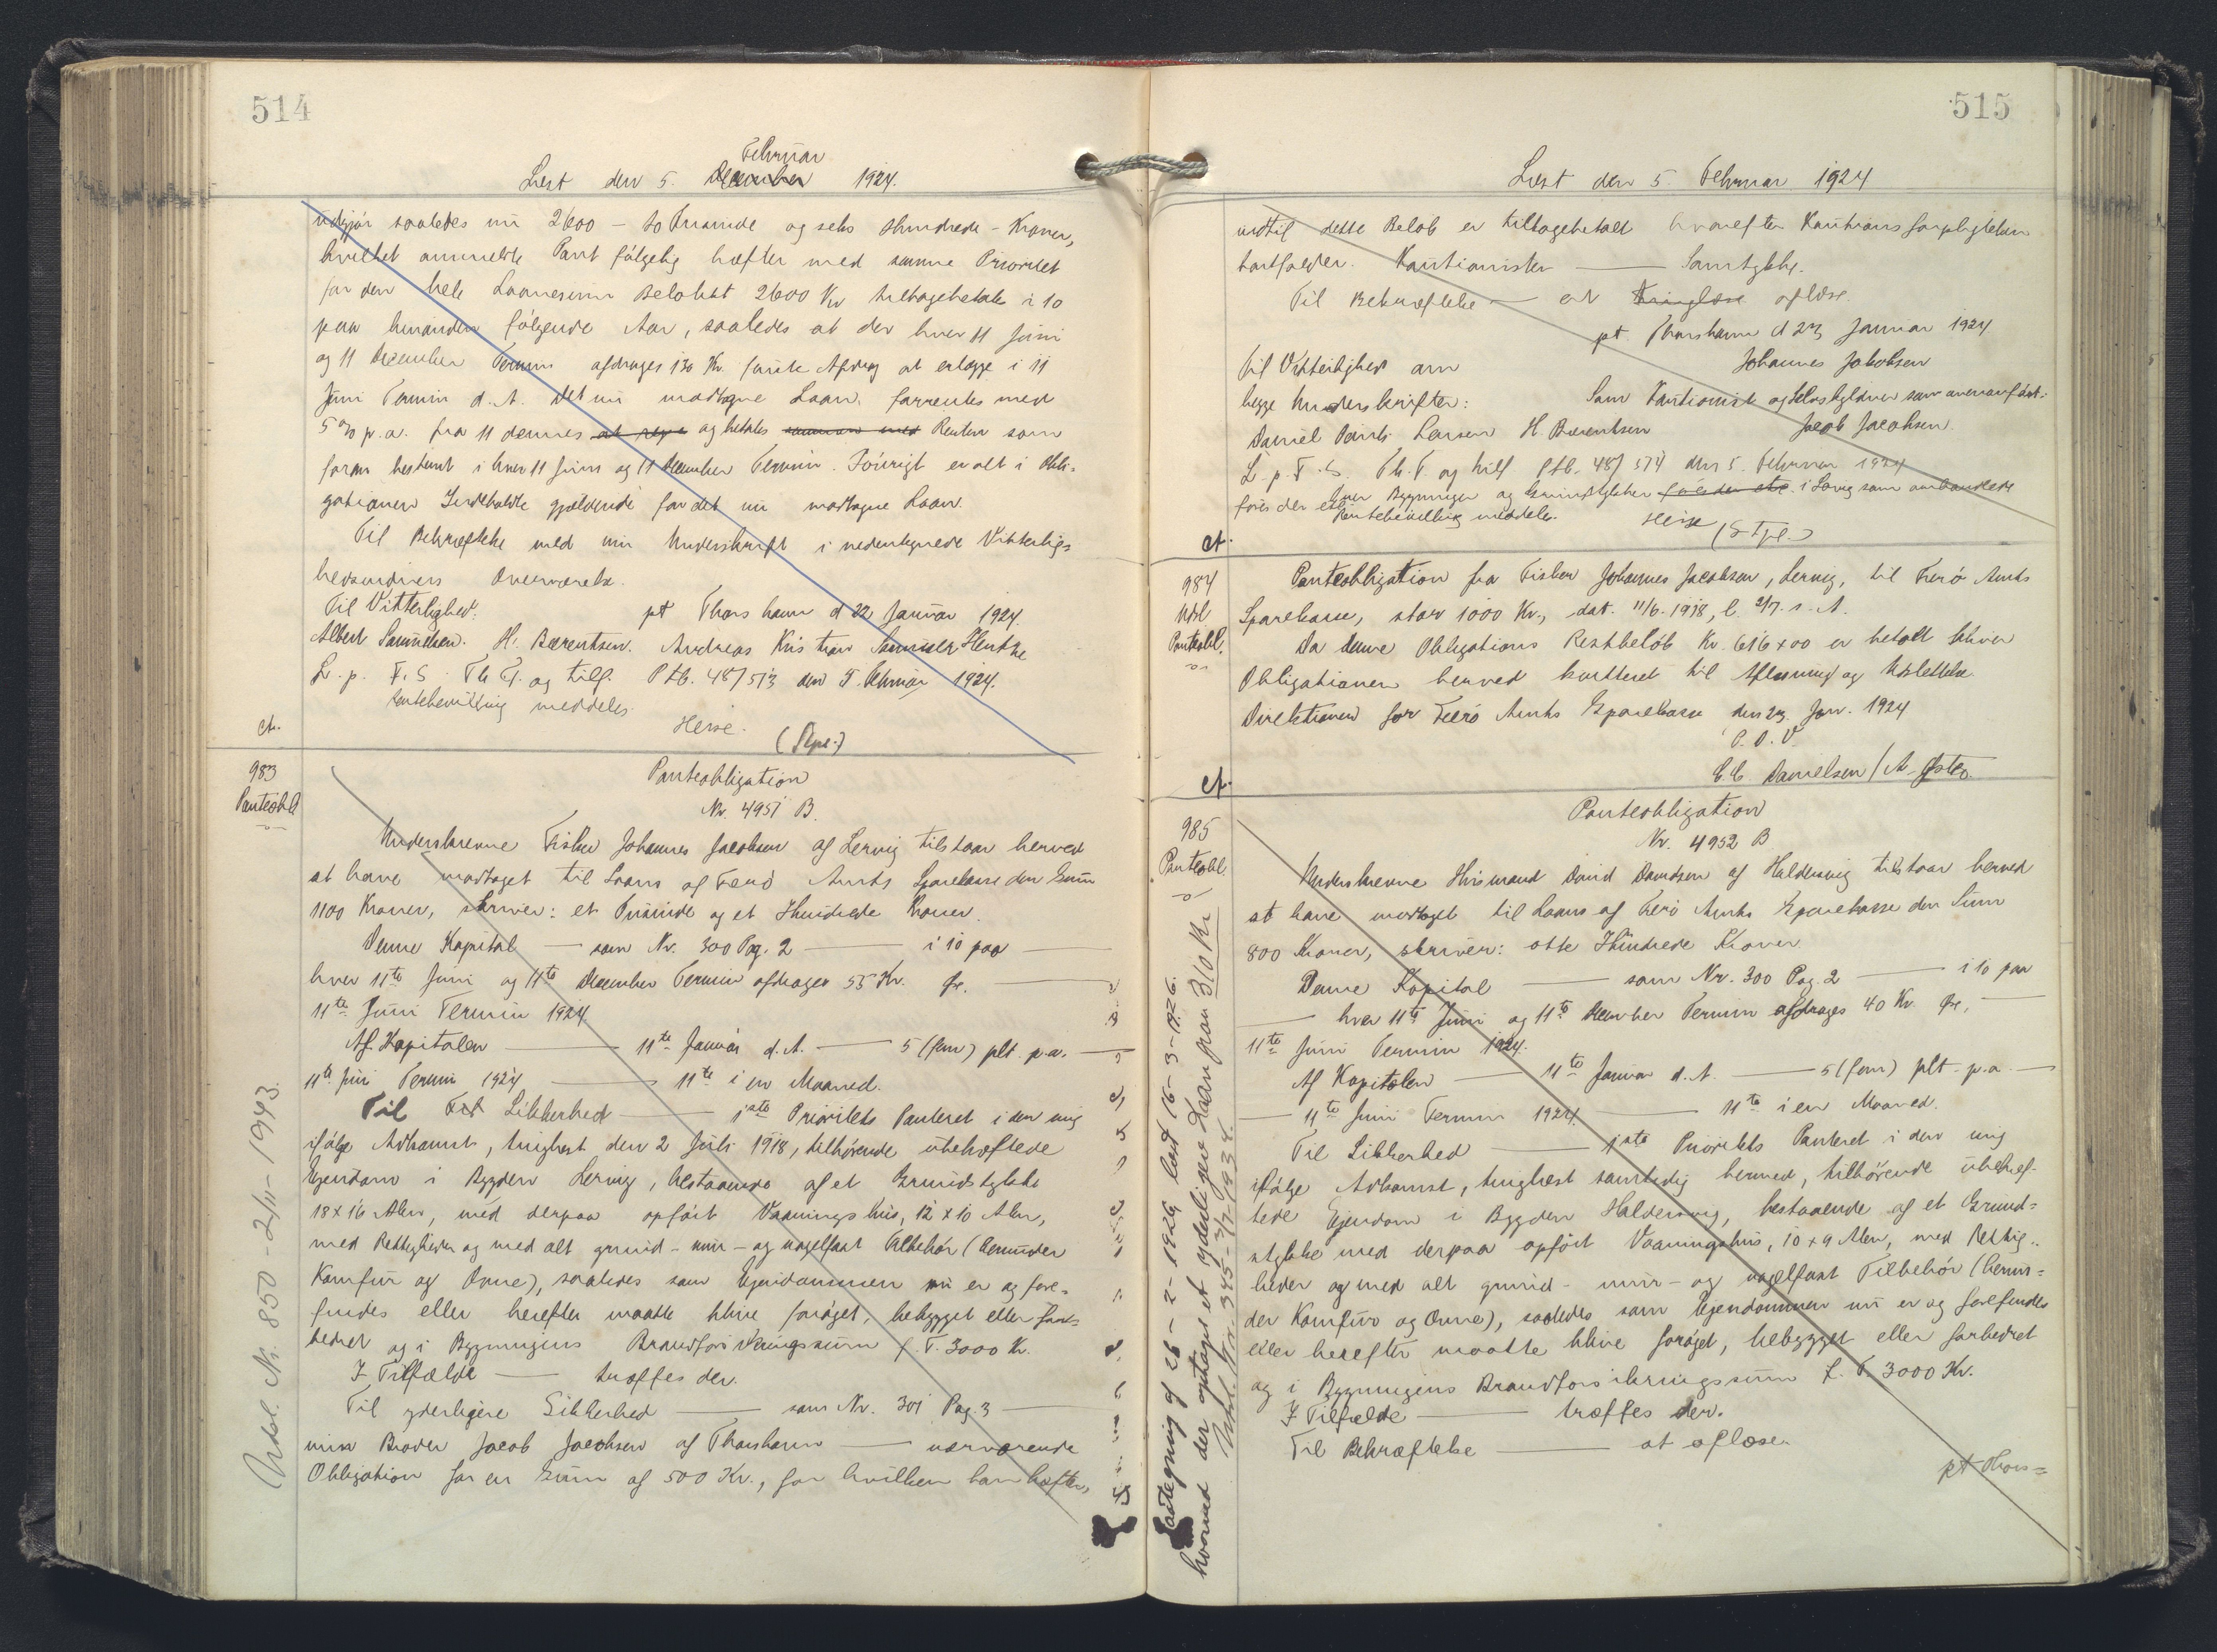 514
Februar
Læst den 5. December 1924.
udgjør saaledes nu 2600 - to Tusinde og seks Hundrede - Kroner,
hvilket anmeldte Pant følgelig hæfter med samme Prioritet
for den hele Laanesum Beløbet 2600 Kr tilbagebetales i 10
paa hinanden følgende Aar, saaledes at der hver 11 Juni
og 11 December Termin afdrages 130 Kr. første Afdrag at erlægge i 11
Juni Termin d. A. Det nu modtagne Laan forrentes med
5 % p.a. fra 11 dennes og betales Renten som
foran bestemt i hver 11 Juni og 11 December Termin. Iøvrigt er alt i Obli-
gationen Indeholdte gjældende for det nu modtagne Laan.
Til Bekræftelse med min Underskrift i nedentegnede Vitterlig-
hedsvidners Overværelse.
Til Vitterlighed: pt Thorshavn d 22 Januar 1924.
Albert Samuelsen. H. Bærentsen. Andreas Kristian Samuel Hentze
L. p. F. S. Th. T. og tilf. Ptb. 48/513 den 5. Februar 1924.
Rentebevilling meddeles.
Heise.
(Stpl.)
ct.
983
Panteobl
Panteobligation
Nr. 4951 B.
Underskrevne Fisker Johannes Jacobsen af Lervig tilstaar herved
at have modtaget til Laans af Færø Amts Sparekasse den Sum
1100 Kroner, skriver: et Tusinde og et Hundrede Kroner.
Denne Kapital — som Nr. 300 Pag. 2 — i 10 paa —
hver 11te Juni og 11te December Termin afdrages 55 Kr. Øre. —
11te Juni Termin 1924
Af Kapitalen — 11te Januar d. A. — 5 (fem) pCt. p.a. —
11te Juni Termin 1924 — 11te i en Maaned.
Til Sikkerhed — 1ste Prioritets Panteret i den mig
ifølge Adkomst, tinglæst den 2 Juli 1918, tilhørende ubehæftede
Ejendom i Bygden Lervig, bestaaende af et Grundstykke
18 x 16 Alen, med derpaa opført Vaaningshus, 12 x 10 Alen,
med Rettigheder og med alt grund- mur- og nagelfast Tilbehør (herunder
Komfur og Ovne), saaledes som Ejendommen nu er og fore-
findes eller herefter maatte blive forøget, bebygget eller for-
bedret og i Bygningens Brandforsikringssum f. T. 3000 Kr.
I Tilfælde — træffes der.
Til yderligere Sikkerhed — som Nr. 301 Pag. 3 —
min Broder Jacob Jacobsen af Thorshavn — nærværende
Obligation for en Sum af 500 Kr., for hvilken han hæfter,
Udsl. Nr. 850 - 2/11 - 1943.
515
Læst den 5. Februar 1924
indtil dette Beløb er tilbagebetalt hvorefter Kautionsforpligtelsen
bortfalder. Kautionisten — Samtykke.
Til Bekræftelse — at aflæse.
pt. Thorshavn d 23 Januar 1924
Til Vitterlighed om Johannes Jakobsen
begge Underskrifter: Som Kautionist og Selvskyldner som ovenanført:
Daniel Pauli Larsen H. Bærentsen Jacob Jacobsen.
L. p. F. S. Th. T. og tilf. Ptb. 48/514 den 5. Februar 1924
over Bygninger og Grundstykker i Lervig som ombandlede
føres der ej
Rentebevilling meddeles. Heise
(Stpl.)
ct.
984
Udsl.
Panteobl.
Panteobligation fra Fisker Johannes Jacobsen, Lervig, til Færø Amts
Sparekasse, stor 1000 Kr., dat. 11/6. 1918, l. 2/7. s. A.
Da denne Obligations Restbeløb Kr. 616 x 00 er betalt bliver
Obligationen herved kvitteret til Aflysning og Udslettelse
Direktionen for Færø Amts Sparekasse den 23. Jan. 1924
P. D. V.
C. C. Danielsen / A. Østerø
ct.
985
Panteobl
Panteobligation
Nr. 4952 B
Underskrevne Husmand David Davidsen af Haldersvig tilstaar herved
at have modtaget til Laans af Færø Amts Sparekasse den Sum
800 Kroner, skriver: otte Hundrede Kroner.
Denne Kapital — som Nr. 300 Pag. 2 — i 10 paa
— hver 11te Juni og 11te December Termin afdrages 40 Kr. Øre, —
11te Juni Termin 1924.
Af Kapitalen — 11te Januar d. A. — 5 (fem) pCt. p.a —
— 11te Juni Termin 1924. — 11te i en Maaned.
Til Sikkerhed — 1ste Prioritets Panteret i den mig
ifølge Adkomst, tinglæst samtidig hermed, tilhørende ubehæf-
tede Ejendom i Bygden Haldersvig, bestaaende af et Grund=
stykke med derpaa opført Vaaningshus, 10 x 9 Alen, med Rettig-
heder og med alt grund- mur- og nagelfast Tilbehør (herun=
der Komfur og Ovne), saaledes som Ejendommen nu er og forefindes
eller herefter maatte blive forøget, bebygget eller forbedret
og i Bygningens Brandforsikringssum f. T. 3000 Kr.
I Tilfælde — træffes der.
Til Bekræftelse — at aflæse.
pt Thors=
Paategning af 26-2-1926 læst 16-3-1926.
hvorved der optages et yderligere Laan stort 310 Kr
Udsl. Nr. 345 - 3/7-1934.